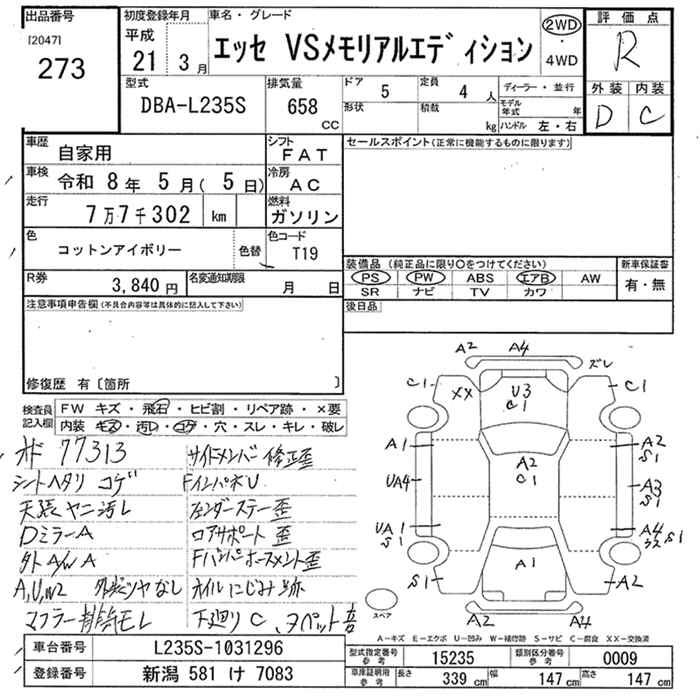 出品番号
[2047]
273
初度登録年月
平成
21年 3月
車名・グレード
エッセ VSメモリアルエディション
2WD
・
4WD
評価点
R
外装 内装
D C
型式
DBA-L235S
排気量
658
CC
ドア 5
形状
定員 4人
積載 kg
ディーラー・並行
モデル年式 年
ハンドル 左・右
車歴 自家用
シフト FAT
車検 令和 8年 5月( 5日)
冷房 AC
走行 7万7千302 km
燃料 ガソリン
色 コットンアイボリー
色替
色コード T19
R券 3,840円
名変通知期限 月 日
セールスポイント(正常に機能するものに限ります)
装備品 (純正品に限り〇をつけてください)
PS PW ABS エアB AW
SR ナビ TV カワ
新車保証書
有・無
後日品
注意事項申告欄(不具合内容等は具体的に記入して下さい)
修復歴 有〔箇所 〕
検査員記入欄
FW キズ・飛石・ヒビ割・リペア跡・×要
内装 キズ・汚レ・コゲ・穴・スレ・キレ・破レ
77313
サイドメンバー修正歪
シートヘタリ コゲ
FインパネU
天張ヤニ汚レ
フェンダーステー歪
DミラーA
ロアサポート歪
外A/W A
Fバンパホースメント歪
A,U,W2 外装ツヤなし
オイルにじみ跡
マフラー排気モレ
下廻りC、
A2 A4 ズレ
C1 XX U3 C1 C1
A1 A2 C1 A2 S1
UA4 A3 S1
UA1 S1 A4 S1
S1 A1 A2
A2 A4
スペア
A-キズ E-エクボ U-凹み W-補修跡 S-サビ C-腐食 XX-交換済
車台番号 L235S-1031296
登録番号 新潟 581 け 7083
型式指定番号 参考 15235
類別区分番号 参考 0009
車庫証明用 参考 長さ 339 cm 幅 147 cm 高さ 147 cm